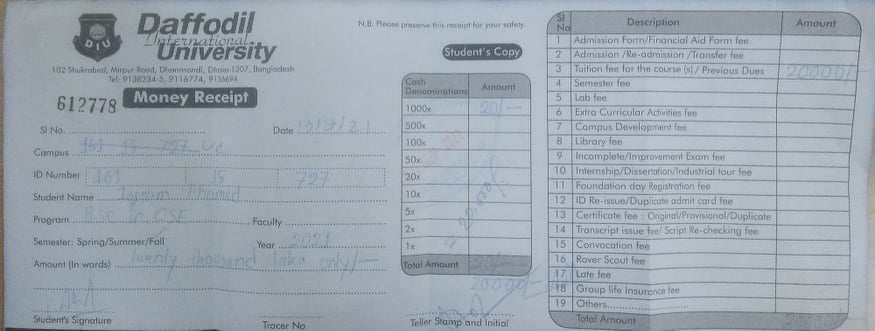 Daffodil
International
University
DIU
102 Shukrabad, Mirpur Road, Dhanmondi, Dhaka-1207, Bangladesh
Tel: 9138234-5, 9116774, 9136694
612778 Money Receipt
N.B. Please preserve this receipt for your safety.
Student's Copy
Sl No. Date 19/9/21
Campus 161-15-727 UC
ID Number 161 15 727
Student Name Ahamed
Program BSC in CSE Faculty
Semester: Spring/Summer/Fall Year 2021
Amount (In words) Twenty thousand taka only/-
Student's Signature
Tracer No
Cash Denominations Amount
1000x 20/-
500x
100x
50x
20x
10x
5x
2x
1x
20,000/-
Total Amount 20/-
20000/-
Teller Stamp and Initial
Sl No Description Amount
1 Admission Form/Financial Aid Form fee
2 Admission /Re-admission /Transfer fee
3 Tuition fee for the course (s)/ Previous Dues 20000/-
4 Semester fee
5 Lab fee
6 Extra Curricular Activities fee
7 Campus Development fee
8 Library fee
9 Incomplete/Improvement Exam fee
10 Internship/Dissertation/Industrial tour fee
11 Foundation day Registration fee
12 ID Re-issue/Duplicate admit card fee
13 Certificate fee : Original/Provisional/Duplicate
14 Transcript issue fee/ Script Re-checking fee
15 Convocation fee
16 Rover Scout fee
17 Late fee
18 Group life Insurance fee
19 Others
Total Amount 20000/-